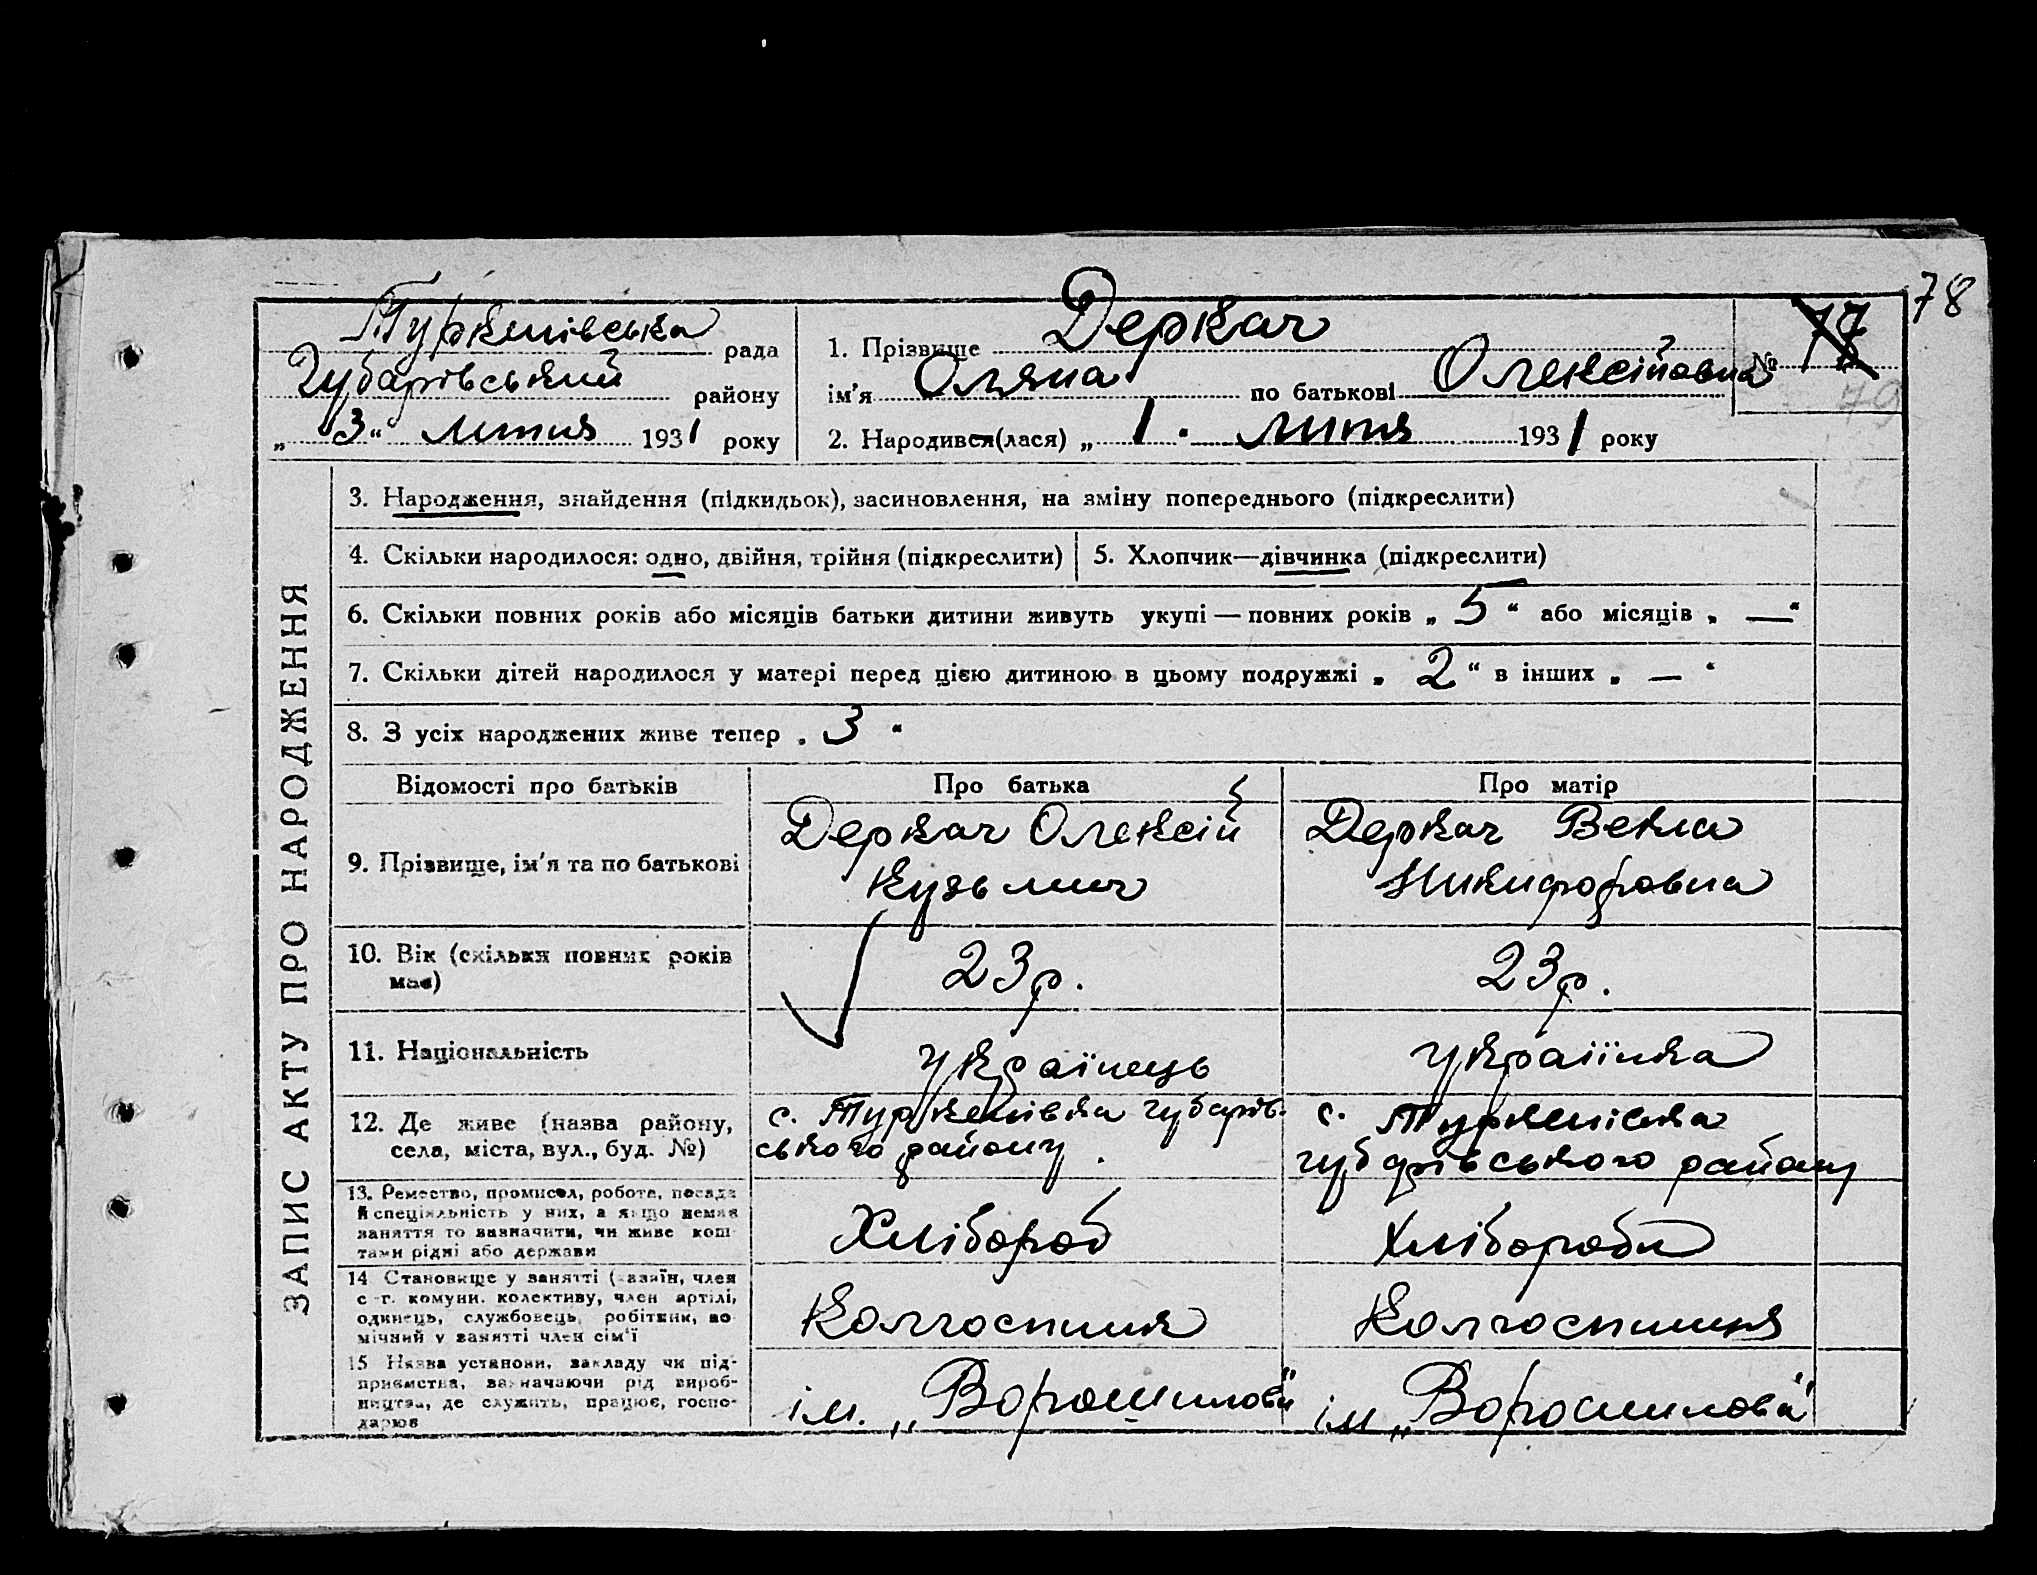 78
Туркенівська рада
Губарівський району
„ 3 “ липня 1931 року
1. Прізвище Деркач
ім'я Оляна по батькові Олексіївна
2. Народився(лася) „ 1 . липня 1931 року
№ 77
79
ЗАПИС АКТУ ПРО НАРОДЖЕННЯ
3. Народження, знайдення (підкидьок), засиновлення, на зміну попереднього (підкреслити)
4. Скільки народилося: одно, двійня, трійня (підкреслити)
5. Хлопчик—дівчинка (підкреслити)
6. Скільки повних років або місяців батьки дитини живуть укупі — повних років „ 5 “ або місяців „ — “
7. Скільки дітей народилося у матері перед цією дитиною в цьому подружжі „ 2 “ в інших „ — “
8. З усіх народжених живе тепер „ 3 “
Відомості про батьків
Про батька
Про матір
9. Прізвище, ім'я та по батькові
Деркач Олексій
Кузьмич
Деркач Векла
Никифоровна
10. Вік (скільки повних років
має)
23 р.
23 р.
11. Національність
українець
українка
12. Де живе (назва району,
села, міста, вул., буд. №)
с. Туркенівка Губарів-
ського району.
с. Туркенівка
Губарівського району
13. Ремество, промисел, робота, посада
й спеціяльність у них, а якщо немає
заняття то визначити, чи живе кош-
тами рідні або держави
Хлібороб
Хлібороби
14 Становище у занятті (хазяїн, член
с.-г. комуни, колективу, член артілі,
одинець, службовець, робітник, по-
мічний у занятті член сім'ї
Колгоспник
Колгоспниця
15 Назва установи, закладу чи під-
приємства, зазначаючи рід вироб-
ництва, де служить, працює, госпо-
дарює
ім. „Ворошилова“
ім „Ворошилова“